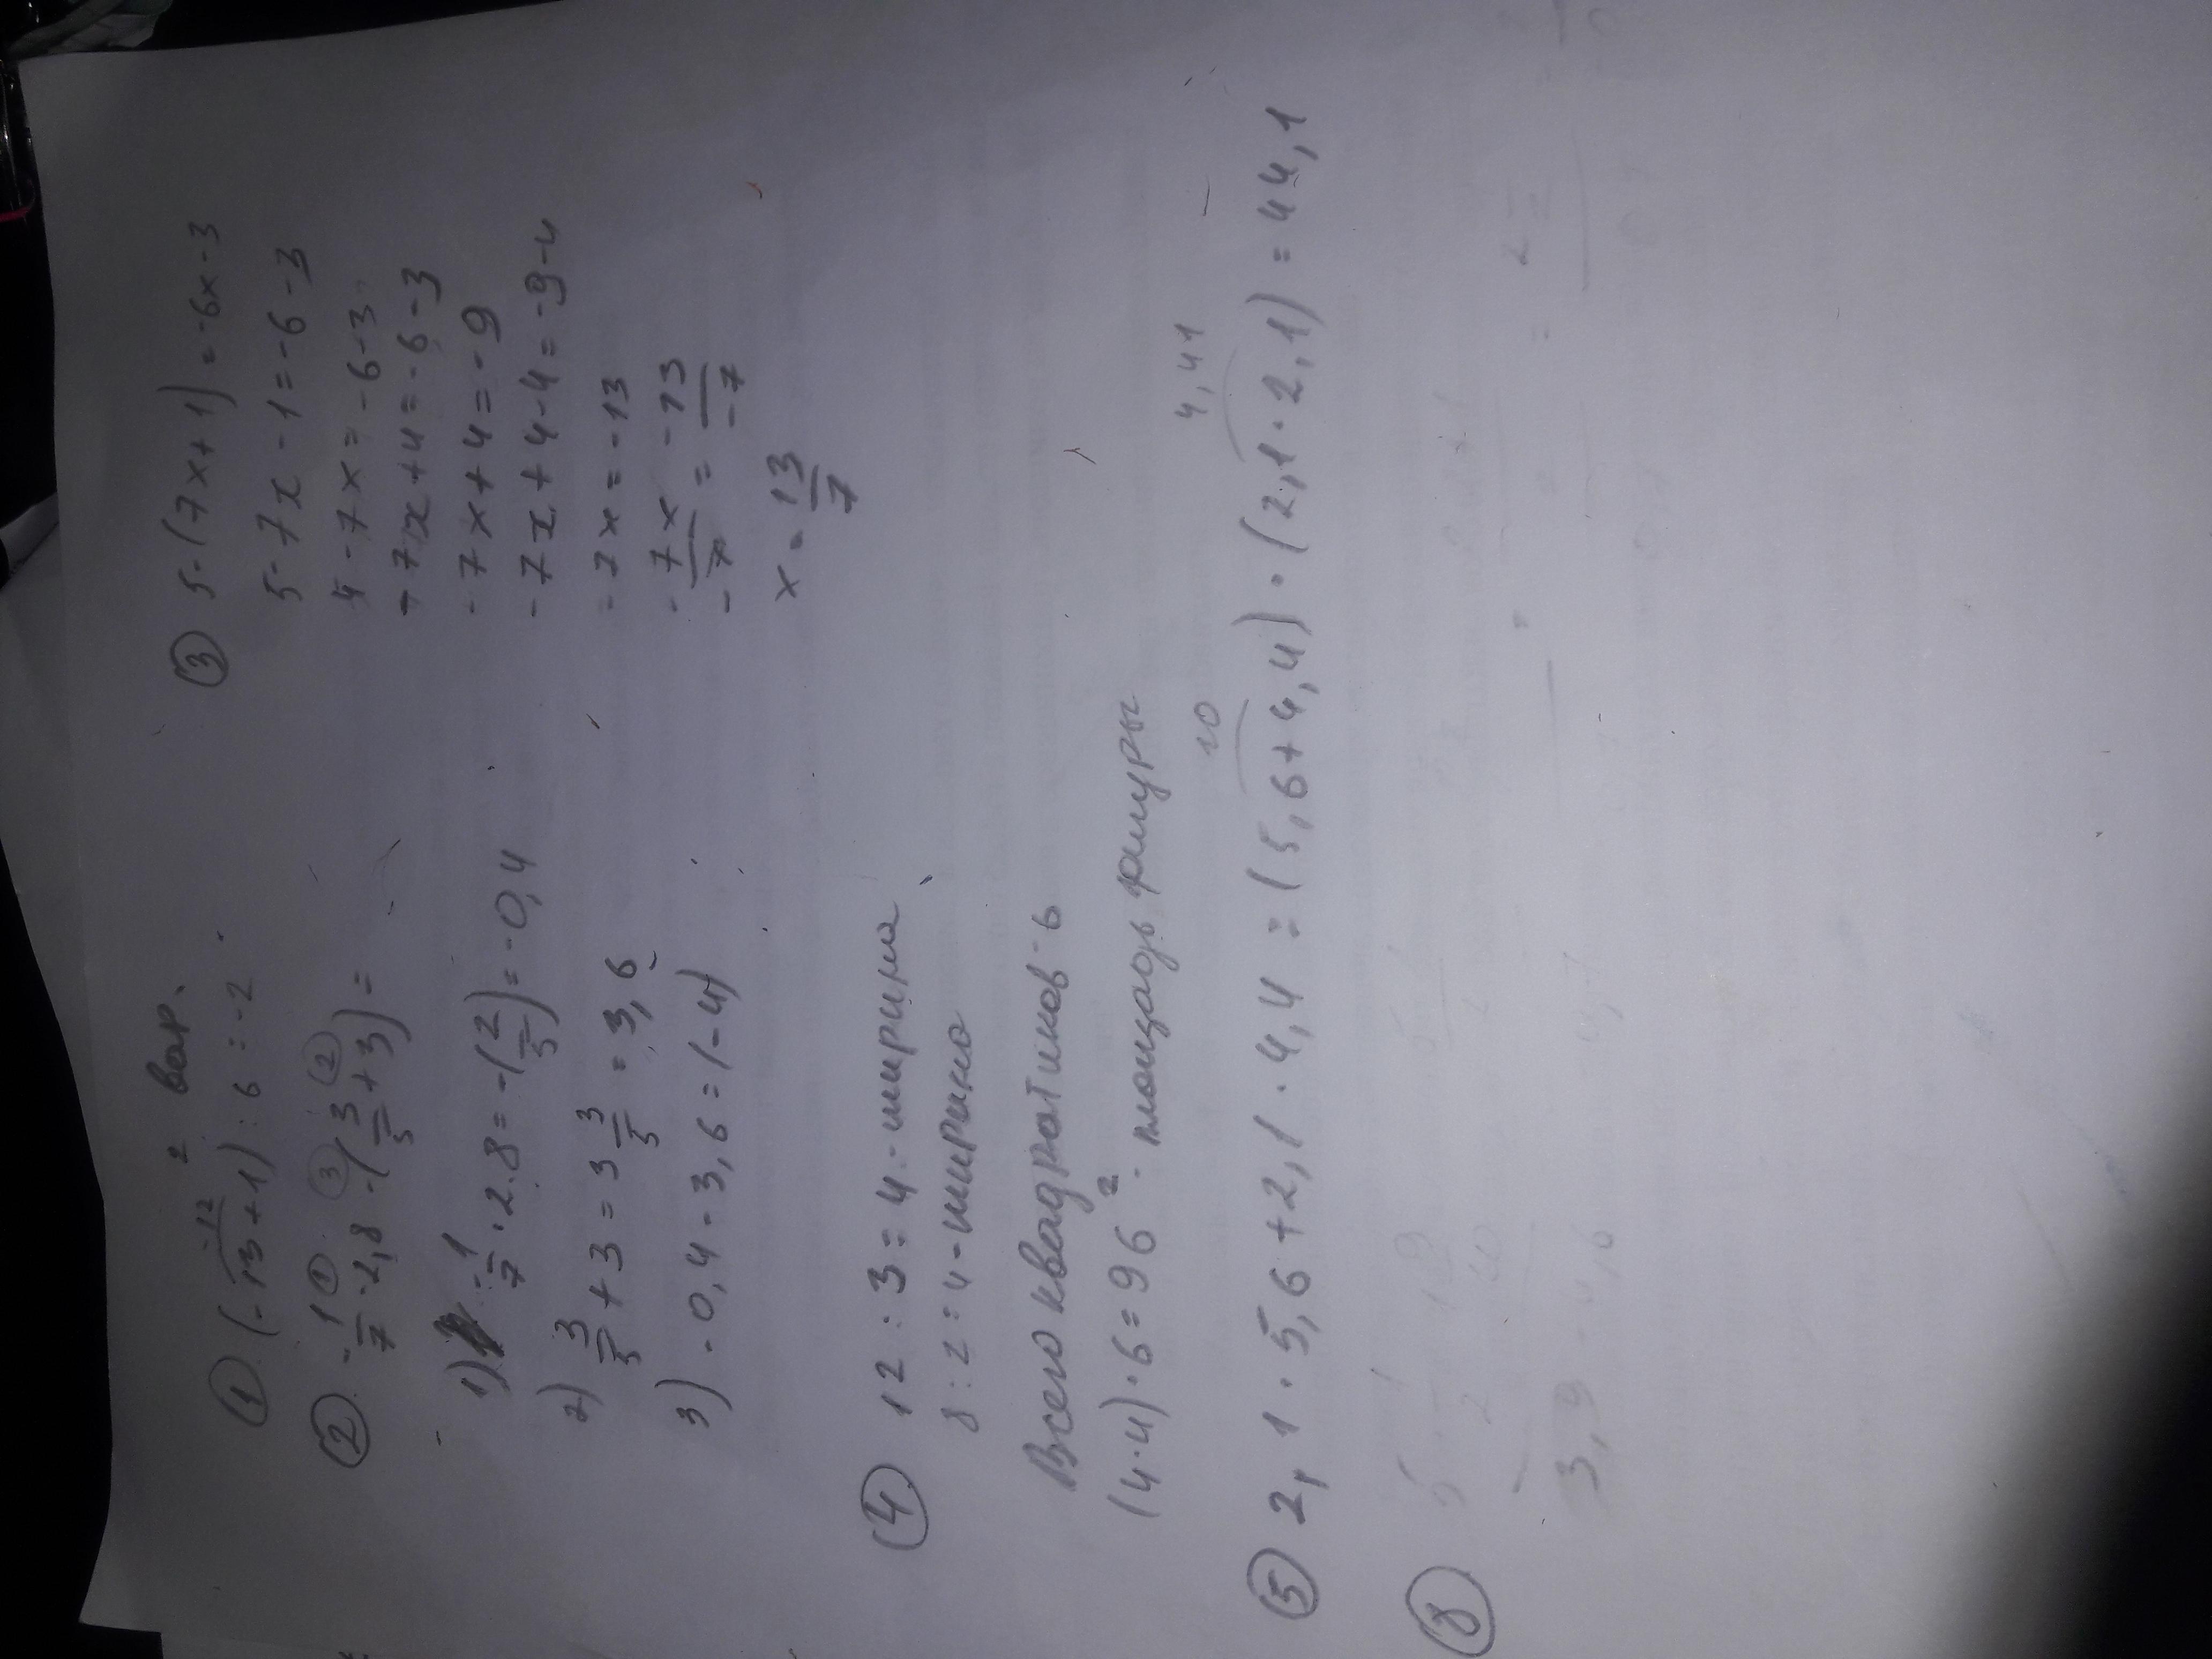 2 вар.
① (-13+1):6=-2
-12
② -1/7·2,8-(3/5+3)=
① ③ ②
1) -1/7·2.8=-(2/5)=-0,4
2) 3/5+3=3 3/5=3,6
3) -0,4-3,6=(-4)
③ 5-(7x+1)=-6x-3
5-7x-1=-6-3
4-7x=-6-3
-7x+4=-6-3
-7x+4=-9
-7x+4-4=-9-4
-7x=-13
-7x/-7=-13/-7
x=13/7
④ 12:3=4-ширина
8:2=4-ширина
Всего квадратиков-6
(4·4)·6=96²-площадь фигуры
10 4,41
⑤ 2,1·5,6+2,1·4,4=(5,6+4,4)·(2,1·2,1)=44,1
⑧